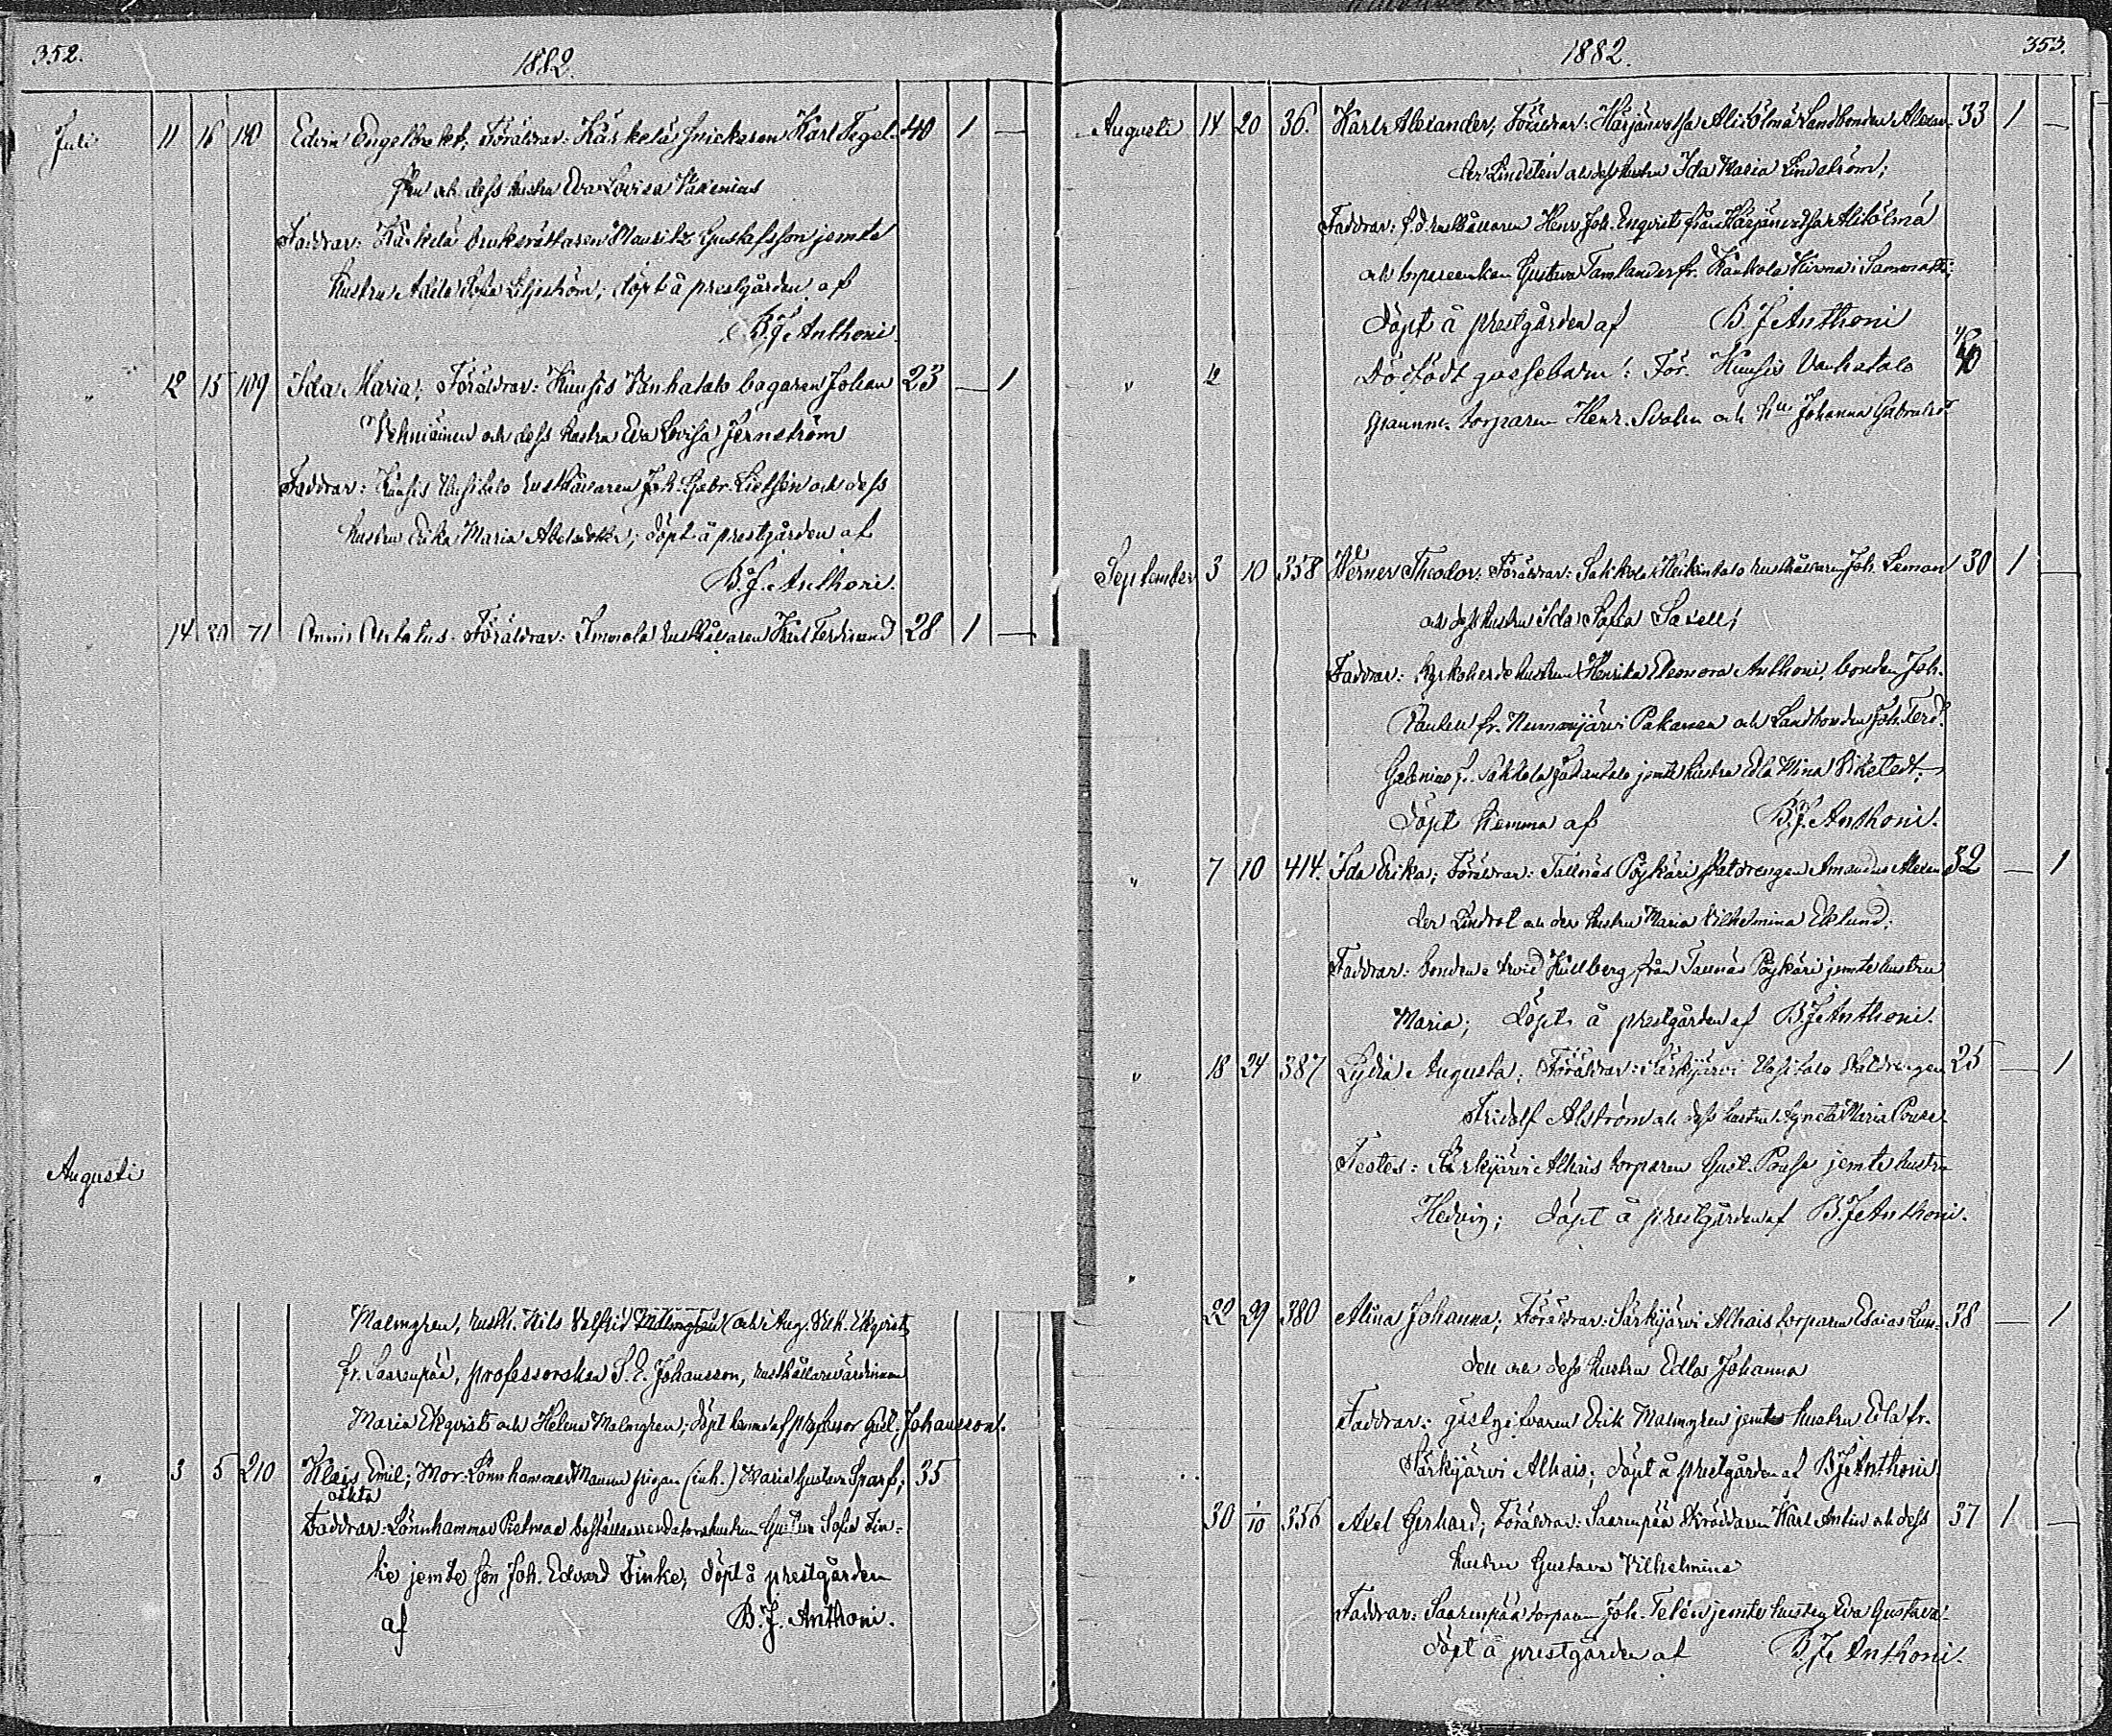 352.
1882.
Juli 11 16 110 Edvin Engelbrekt; Föräldrar: Kärkelä Karl Tegel- 40 1 —
och dess hustru Eva Lovisa
Faddrar: Kärkelä Mauritz Gustafsson jemte
hustru Adéle Sofia Liljeström; döpt å prestgården af
B. J. Anthoni.
" 12 15 109 Ida Maria; Föräldrar: Kuusis Vanhatalo bagaren Johan 23 — 1
och dess hustru Eva Lovisa Jernström
Faddrar: Kuusis Uusitalo rusthållaren Joh. Gabr. och dess
hustru Erika Maria Abelsdotter; döpt å prestgården af
B. J. Anthoni.
14 20 71 Föräldrar: Immola rusthållaren Karl Ferdinand 28 1 —
Augusti
Malmgren, rusth. Nils Valfrid Malmgren och Aug. Vilh. Ekqvist
fr. Saarenpää, professorskan S. E. Johansson, rusthållarevärdinnan
Maria Ekqvist och Helena Malmgren; döpt hemma af professor Gust. Johansson.
" 3 5 210 Klas Emil; Mor: Lönnhammar Mannu pigan (inh.) Maria Gustava Sparf; 35
oäkta
Faddrar: Lönnhammar Gustava Sofia Fin-
ke jemte son Joh. Edvard Finke; döpt å prestgården
af B. J. Anthoni.
353.
1882.
Augusti 14 20 36. Karl Alexander; Föräldrar: Härjänvatsa Alitölmä Landbonden Alexan- 33 1 —
der Lindstén och dess hustru Ida Maria Lindström;
Faddrar: f.d. rusthållaren Henr. Joh. Enqvist från Härjänvatsa Alitölmä
och Gustava Tamlander fr. Kaukola i Sammatti;
döpt å prestgården af B. J. Anthoni
" 12 Dödfödt gossebarn: För. Kuusis Vanhatalo 40
torparen Henr. och hu Johanna
September 3 10 358 Werner Theodor; Föräldrar: Sakkola Heikintalo rusthållaren Joh. Leman 30 1 —
och dess hustru Ida Sofia Saxell;
Faddrar: kyrkoherdehustrun Henrika Eleonora Anthoni, bonden Joh.
fr. Nummijärvi Pakanen och Landbonden Joh. Ferd.
fr. Sakkola jemte hustru Edla Mina
döpt hemma af B. J. Anthoni.
" 7 10 414. Ida Erika; Föräldrar: Tallnäs Pöykäri Statdrengen Amandus Alexan- 32 — 1
der och dess hustru Maria Vilhelmina Eklund;
Faddrar: bonden Arvid Kullberg från Tallnäs Pöykäri jemte hustru
Maria; döpt å prestgården af B. J. Anthoni.
" 18 24 387 Lydia Augusta; Föräldrar: Särkijärvi Uusitalo Statdrengen 25 — 1
Fridolf Ahlström och dess hustru Agneta Maria
Testes: Särkijärvi Alhais torparen Gust. jemte hustru
Hedvig; döpt å prestgården af B. J. Anthoni.
"
22 29 380 Alina Johanna; Föräldrar: Särkijärvi Alhais torparen Esaias Lun- 38 — 1
dell och dess hustru Edla Johanna
Faddrar: gästgifvaren Erik Malmgren jemte hustru Edla fr.
Särkijärvi Alhais; döpt å prestgården af B. J. Anthoni
30 1/10 356 Axel Gerhard; Föräldrar: Saarenpää skräddaren Karl Antin och dess 37 1 —
hustru Gustava Vilhelmina
Faddrar: Saarenpää torparen Joh. Telén jemte hustru Eva Gustava.
döpt å prestgården af B. J. Anthoni.